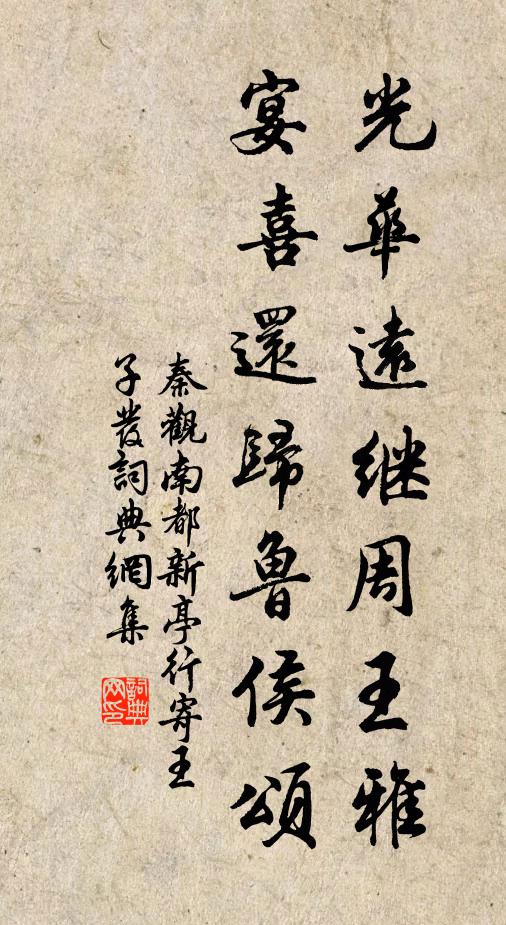 光華遠继周王雅
宴喜還歸魯侯頌
秦觀南都新亭行寄王
子發詞典網集
詞典网印